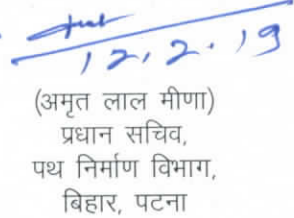 12.2.19
(अमृत लाल मीणा)
प्रधान सचिव,
पथ निर्माण विभाग,
बिहार, पटना